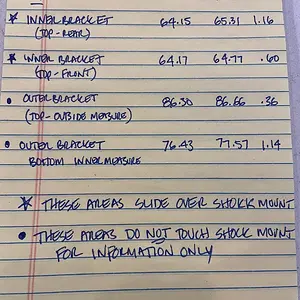 ★ INNER BRACKET 64.15 65.31 1.16
(TOP-REAR)
★ INNER BRACKET 64.17 64.77 .60
(TOP-FRONT)
• OUTER BRACKET 86.30 86.66 .36
(TOP-OUTSIDE MEASURE)
• OUTER BRACKET 76.43 77.57 1.14
BOTTOM INNER MEASURE
★ THESE AREAS SLIDE OVER SHOCK MOUNT
• THESE AREAS DO NOT TOUCH SHOCK MOUNT
FOR INFORMATION ONLY